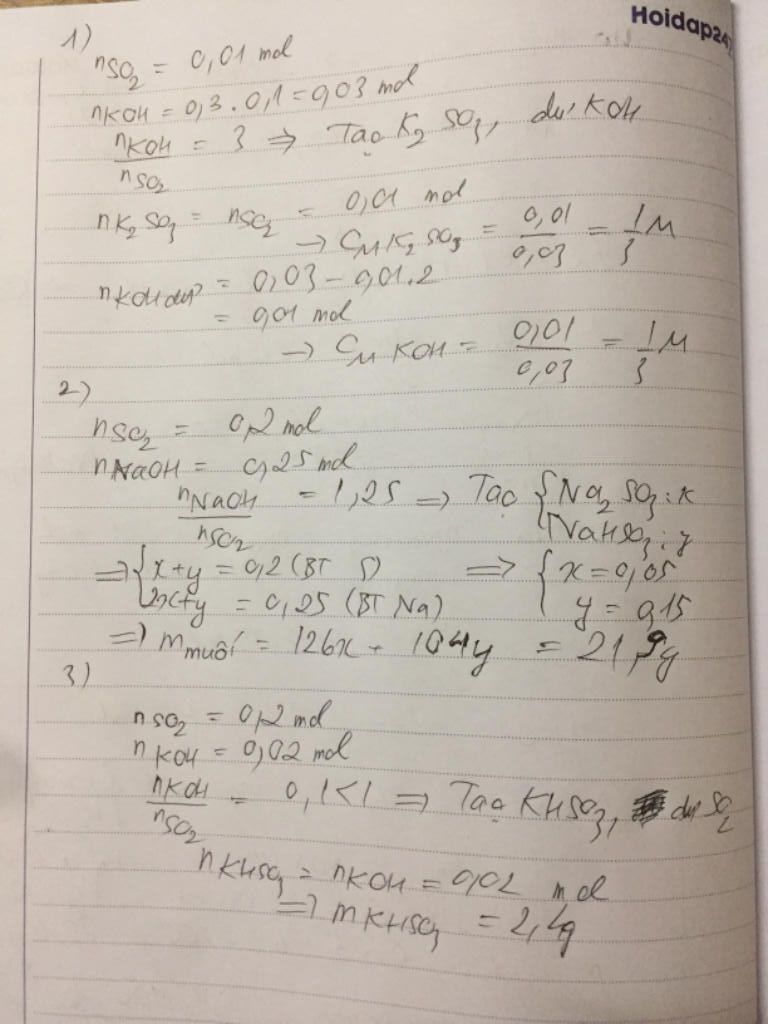 Hoidap247
1)
nSO2 = 0,01 mol
nKOH = 0,3 . 0,1 = 0,03 mol
nKOH / nSO2 = 3 => Tạo K2SO3, dư KOH
nK2SO3 = nSO2 = 0,01 mol
→ CM K2SO3 = 0,01 / 0,03 = 1/3 M
nKOH dư = 0,03 - 0,01.2
= 0,01 mol
→ CM KOH = 0,01 / 0,03 = 1/3 M
2)
nSO2 = 0,2 mol
nNaOH = 0,25 mol
nNaOH / nSO2 = 1,25 => Tạo { Na2SO3 : x
NaHSO3 : y
=> { x+y = 0,2 (BT S) => { x = 0,05
2x+y = 0,25 (BT Na) y = 0,15
=> m muối = 126x + 104y = 21,9g
3)
nSO2 = 0,2 mol
nKOH = 0,02 mol
nKOH / nSO2 = 0,1 < 1 => Tạo KHSO3, dư SO2
nKHSO3 = nKOH = 0,02 mol
=> mKHSO3 = 2,4g